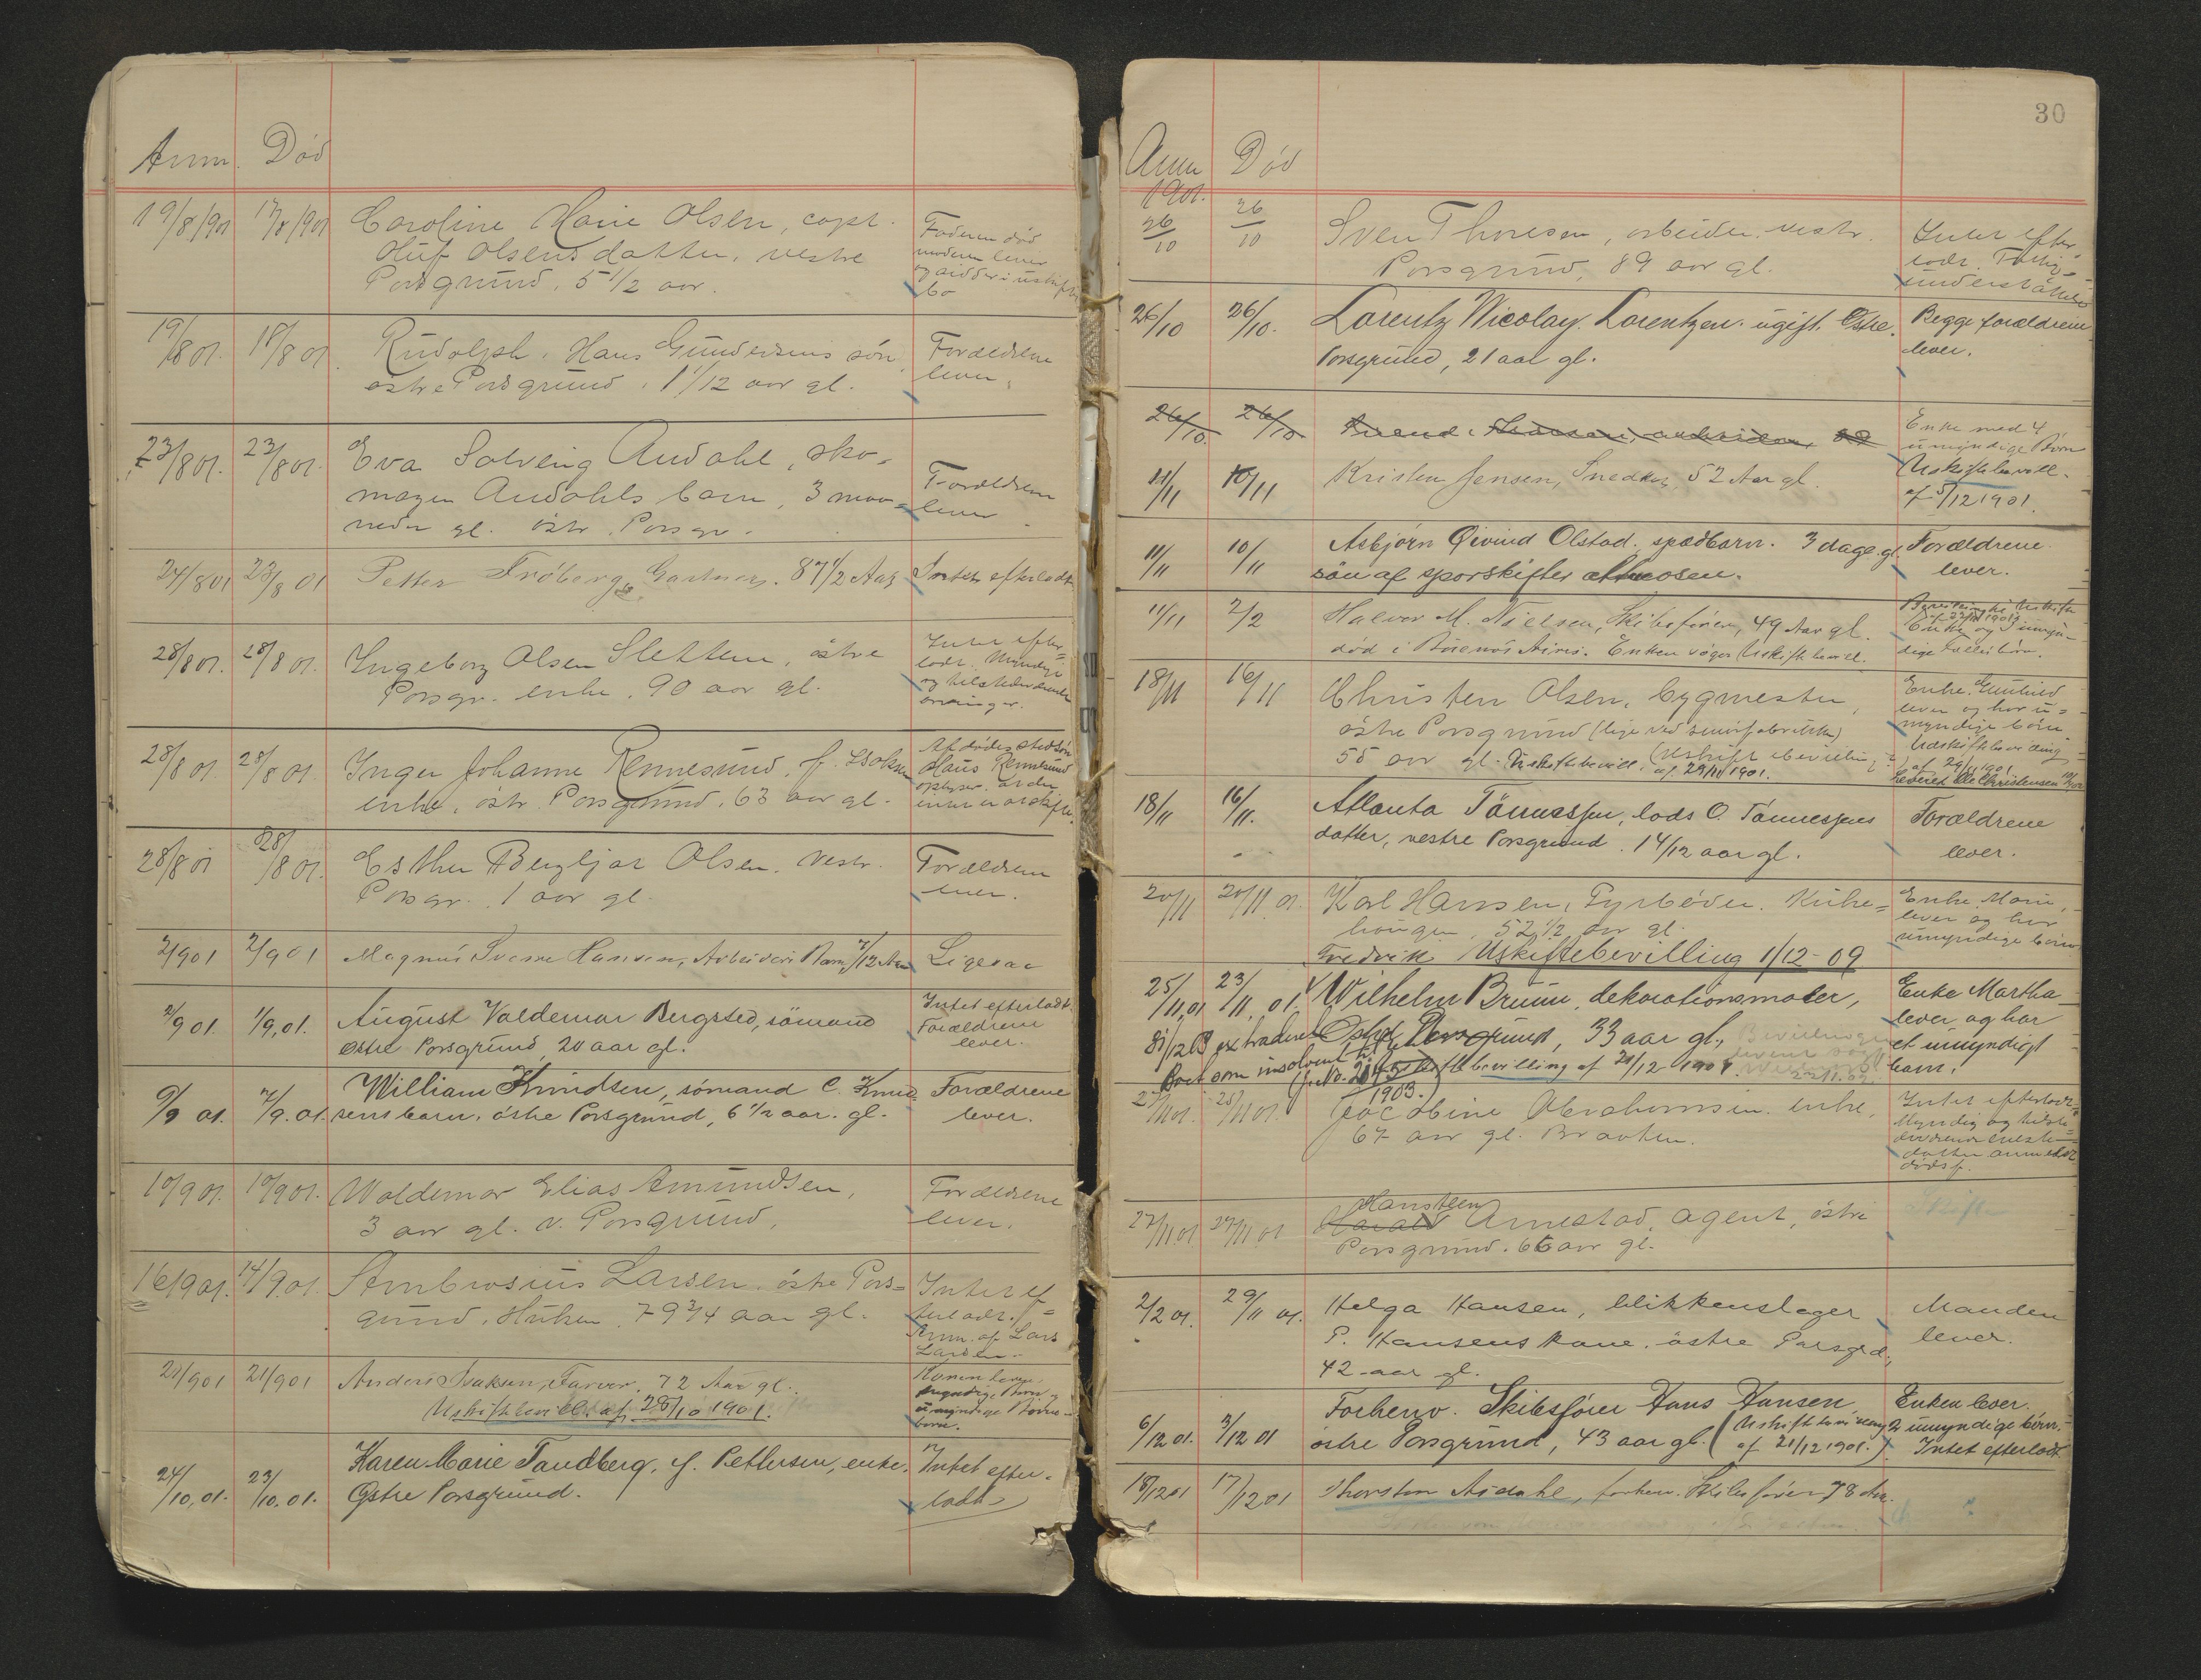 Anm. Död
19/8/901 17/8/901 Caroline Marie Olsen, capt. Faderen död
Oluf Olsens datter, vestre moderen lever
Porsgrund, 5 1/2 aar. og sidder i uskiftet
bo
19/8 01. 18/8 01. Rudolph, Hans Gundersens sön, Forældrene
östre Porsgrund, 1 1/12 aar gl. lever.
23/8 01. 23/8 01. Eva Solveig Audahl, sko-
mager Audahls barn, 3 maa- Forældrene
neder gl. östr. Porsgr. lever
24/8 01 23/8 01 Petter Fröberg, Gartner, 87 1/2 Aar Intet efterladt
28/8 01. 28/8 01. Ingeborg Olsen Sletten, östre Intet efter-
Porsgr. enke, 90 aar gl. ladt. Myndige
og tilstedeværende
arvinger.
28/8 01. 28/8 01. Inger Johanne Rennesund, f. Isaksen Afdødes stedsön
enke, östr. Porsgrund, 63 aar gl. Haus Rennesund
opLyser, at der
intet er at skifte.
28/8 01 28/8 01. Esther Bergljot Olsen. Vestr. Forældrene
Porsgr. 1 aar gl. lever.
2/9 01 2/9 01 Magnus Sverre Hansen, Arbeiders Barn, 7/12 Aar Ligesaa
2/9 01 1/9, 01. August Valdemar Bergsted, sömand Intet efterladt
Østre Porsgrund, 20 aar gl. Forældrene
lever.
9/9 01. 7/9. 01. William Knudsen, sömand C. Knud- Forældrene
sens barn, östre Porsgrund, 6 1/2 aar. gl. lever.
10/9 01. 10/9 01. Waldemar Elias Amundsen, Forældrene
3 aar gl. v. Porsgrund, lever.
16/9 01. 14/9 01. Ambrosius Larsen, östre Pors- Intet ef-
grund, 79 3/4 aar gl. terladt.
Anm. af Lars
Larsen.
21/9 01 21/9 01 Anders Isaksen, Farver, 72 Aar gl. Konen lever,
Uskiftebevill. af 28/10 1901. myndige Børn og
umyndige Børne-
børn.
24/10, 01. 23/10. 01. Karen Marie Tandberg, f. Pettersen, enke. Intet efter-
Østre Porsgrund. ladt
30
Anm Död
1901.
26/10 26/10 Sven Thoresen, arbeider. vestr. Intet efter-
Porsgrund, 89 aar gl. ladt. Fattig-
understöttelse
26/10 26/10. Lorentz Nicolay Lorentzen. ugift. Østre. Begge forældrene
Porsgrund, 21 aar gl. lever.
26/10. 26/10 Enke med 4
umyndige Børn
11/11 10/11 Kristen Jensen, Snedker, 52 Aar gl. Uskiftebevill.
af 5/12 1901.
11/11 10/11 Asbjörn Øivind Olstad. spædbarn. 3 dage gl. Forældrene
sön af sporskifter lever.
11/11 2/2 Halvor M. Nielsen, Skibsfører, 49 Aar gl.
död i Buenos Aires. Enken söger Uskiftebevill. Enke og umyn-
dige Fællesbörn.
18/11 16/11 Christen Olsen, bygmester, Enke, Gunhild
östre Porsgrund (lige ved lever og har u-
55 aar gl. (Uskiftebevilling myndige börn.
af 29/11 1901. Udskiftebevilling
af 29/11 1901
18/11 16/11. Atlanta Tönnessen, lods O. Tönnessens Forældrene
datter, vestre Porsgrund. 14/12 aar gl. lever.
20/11 20/11 01. Karl Hansen, Fyrböder. Kirke- Enke, Marie,
haugen, 52 1/2 aar gl. lever og har
umyndige börn
Fredrik Uskiftebevilling 1/12-09
25/11, 01 23/11, 01. Wilhelm Bruun, dekorationsmaler, Enke Martha
Østre Porsgrund, 33 aar gl., lever og har
et umyndigt
Boet som insolvent Uskiftebevilling af 21/12 1901. barn.
1903.
25/11 01. Jacobine Abrahamsen. enke, Intet efterladt.
67 aar gl. Bratten. Myndig og tilste-
deværende eneste
datter anmeldt
dödsf.
27/11 01 27/11 01 Hansteen
Arnestad, agent, östre Skifte
Porsgrund. 66 aar gl.
2/12 01. 29/11 01. Helga Hansen, blikkenslager Manden
P. Hansens kone. östre Porsgrd., lever.
42 aar gl.
Forhenv. Skibsfører Hans Hansen, Enken lever.
6/12 01. 3/12 01 östre Porsgrund, 43 aar gl. (Uskiftebevilling 2 umyndige börn.
af 21/12 1901.) Intet efterladt
18/12 01 17/12 01 Thorsten Asdahl, forhenv. Skibsfører, 78 Aar.